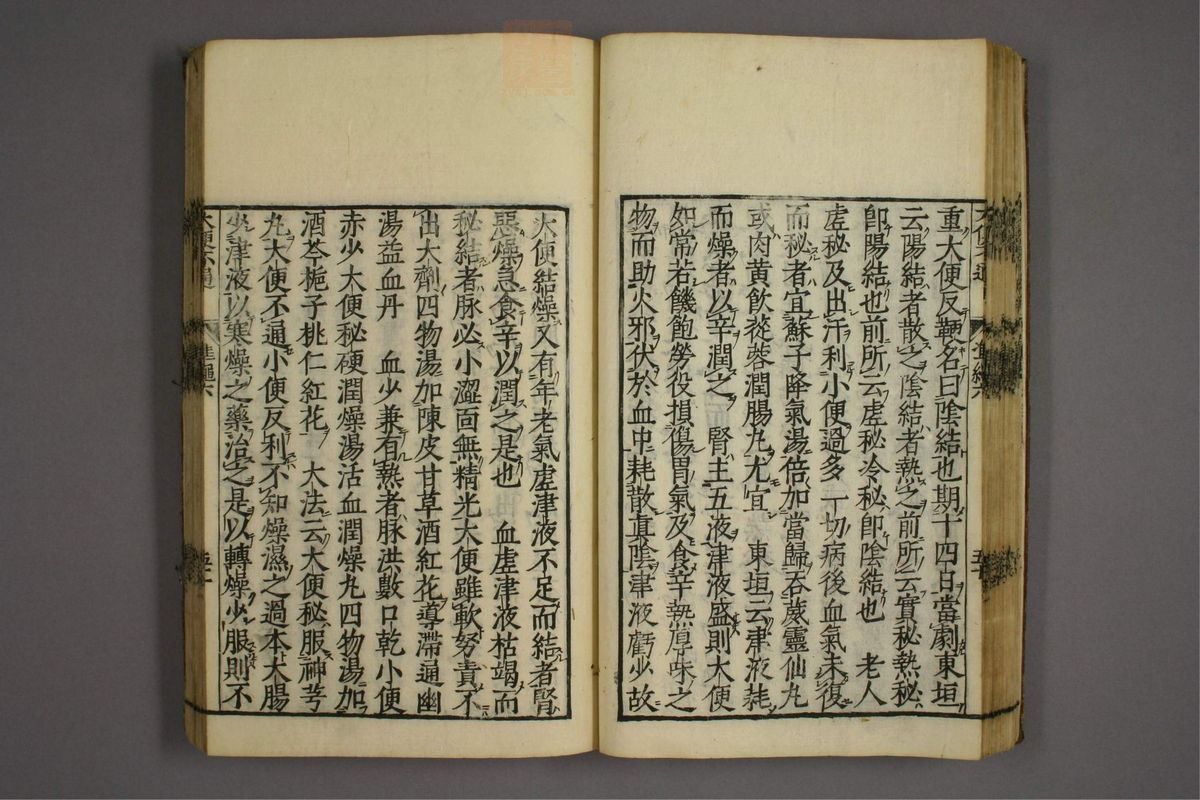 重大便反鞕名曰陰結也期十四日當劇東垣
云陽結者散之陰結者熱之前所云實秘熱秘
卽陽結也前所云虚秘冷秘卽陰結也　老人
虚秘及出汗利小便過多一切病後血氣未復
而秘者宜蘇子降氣湯倍加當歸吞葳靈仙丸
或肉黄飲蓯蓉潤腸丸尤宜　東垣云津液耗
而燥者以辛潤之　腎主五液津液盛則大便
如常若饑飽勞役損傷胃氣及食辛熱厚味之
物而助火邪伏於血中耗散眞陰津液虧少故
大便結燥又有年老氣虚津液不足而結者腎
惡燥急食辛以潤之是也　血虚津液枯竭而
秘結者脉必小澁面無精光大便雖軟努責不
出大劑四物湯加陳皮甘草酒紅花導滯通幽
湯益血丹　血少兼有熱者脉洪數口乾小便
赤少大便秘硬潤燥湯活血潤燥丸四物湯加
酒芩梔子桃仁紅花　大法云大便秘服神芎
丸大便不通小便反利不知燥濕之過本大腸
少津液以寒燥之藥治之是以轉燥少服則不
大便不通